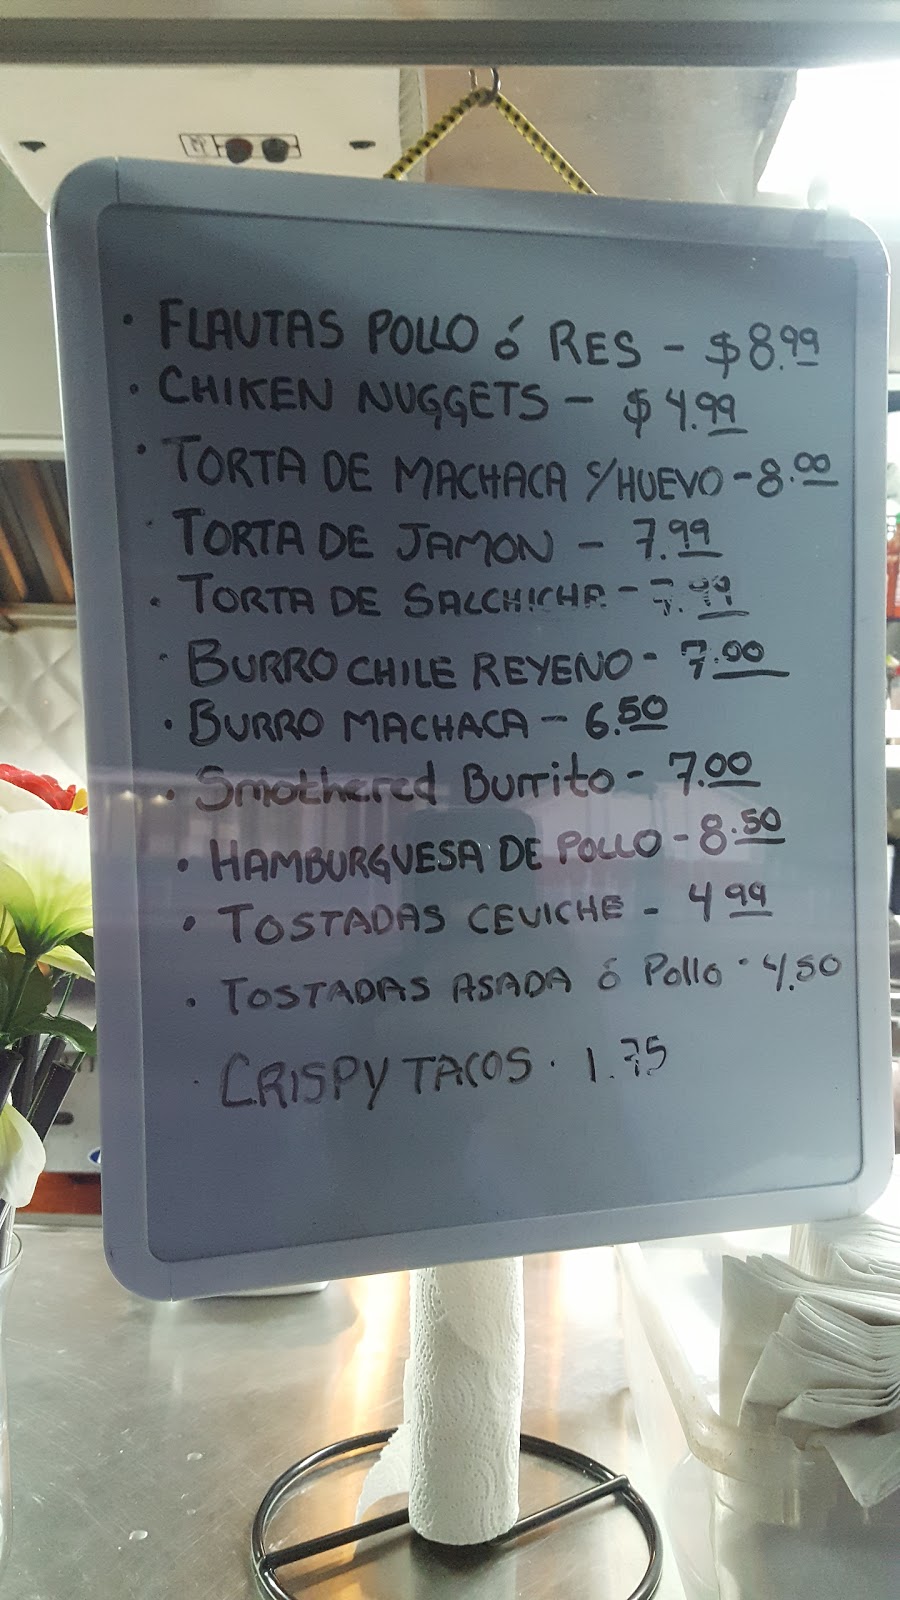 · FLAUTAS POLLO ó RES - $8.99
· CHIKEN NUGGETS - $4.99
· TORTA DE MACHACA c/HUEVO - 8.00
· TORTA DE JAMON - 7.99
· TORTA DE SALCHICHA - 7.99
· BURRO CHILE REYENO - 7.00
· BURRO MACHACA - 6.50
· Smothered Burrito - 7.00
· HAMBURGUESA DE POLLO - 8.50
· TOSTADAS CEVICHE - 4 99
· TOSTADAS ASADA ó Pollo · 4.50
· CRISPY TACOS · 1.75